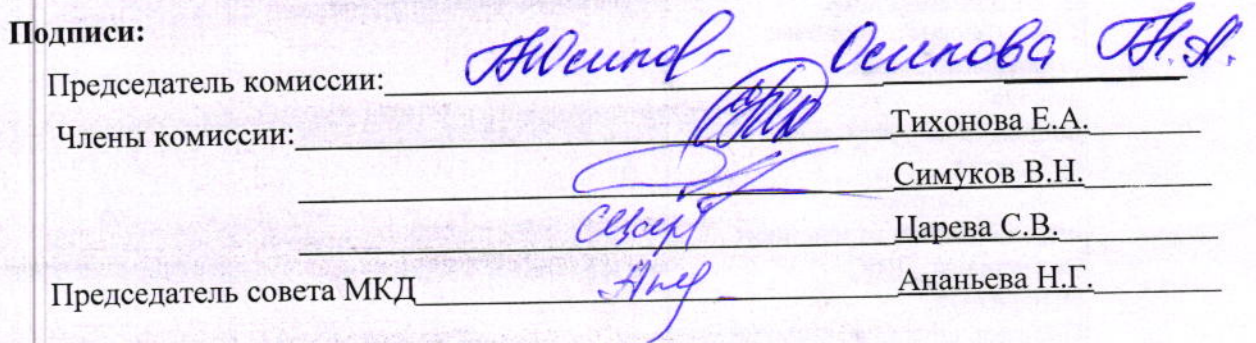 Подписи:
Председатель комиссии: Осипова Т.А.
Члены комиссии: Тихонова Е.А.
Симуков В.Н.
Царева С.В.
Председатель совета МКД Ананьева Н.Г.